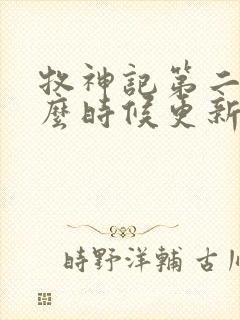 牧神記第二
麼時候更新
時野洋輔 古川